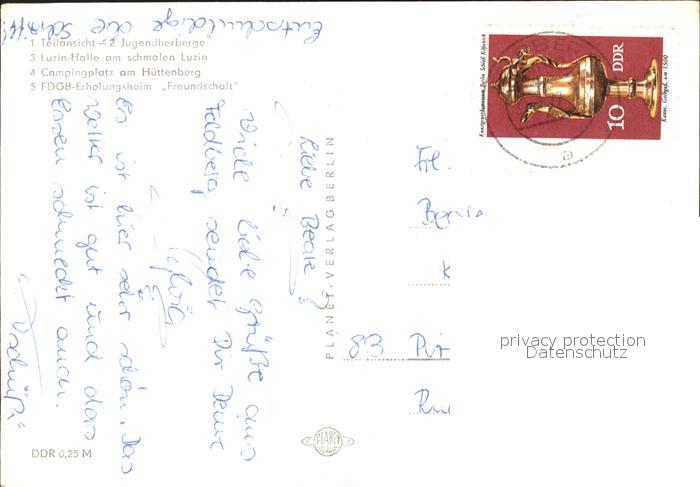 Entschuldige die Schrift!
1 Teilansicht – 2 Jugendherberge
3 Luzin-Halle am schmalen Luzin
4 Campingplatz am Hüttenberg
5 FDGB-Erholungsheim „Freundschaft"
Liebe Beate!
Viele liebe Grüße aus
Feldberg sendet Dir Deine
Es ist hier sehr schön. Das
Wetter ist gut und das
Essen schmeckt auch.
DDR 0,25 M
PLANET-VERLAG BERLIN
PLANET
Kunstgewerbemuseum Berlin Schloß Köpenick
DDR
10
Kanne, Goldguß, um 1500
Frl.
83 Pir
privacy protection
Datenschutz